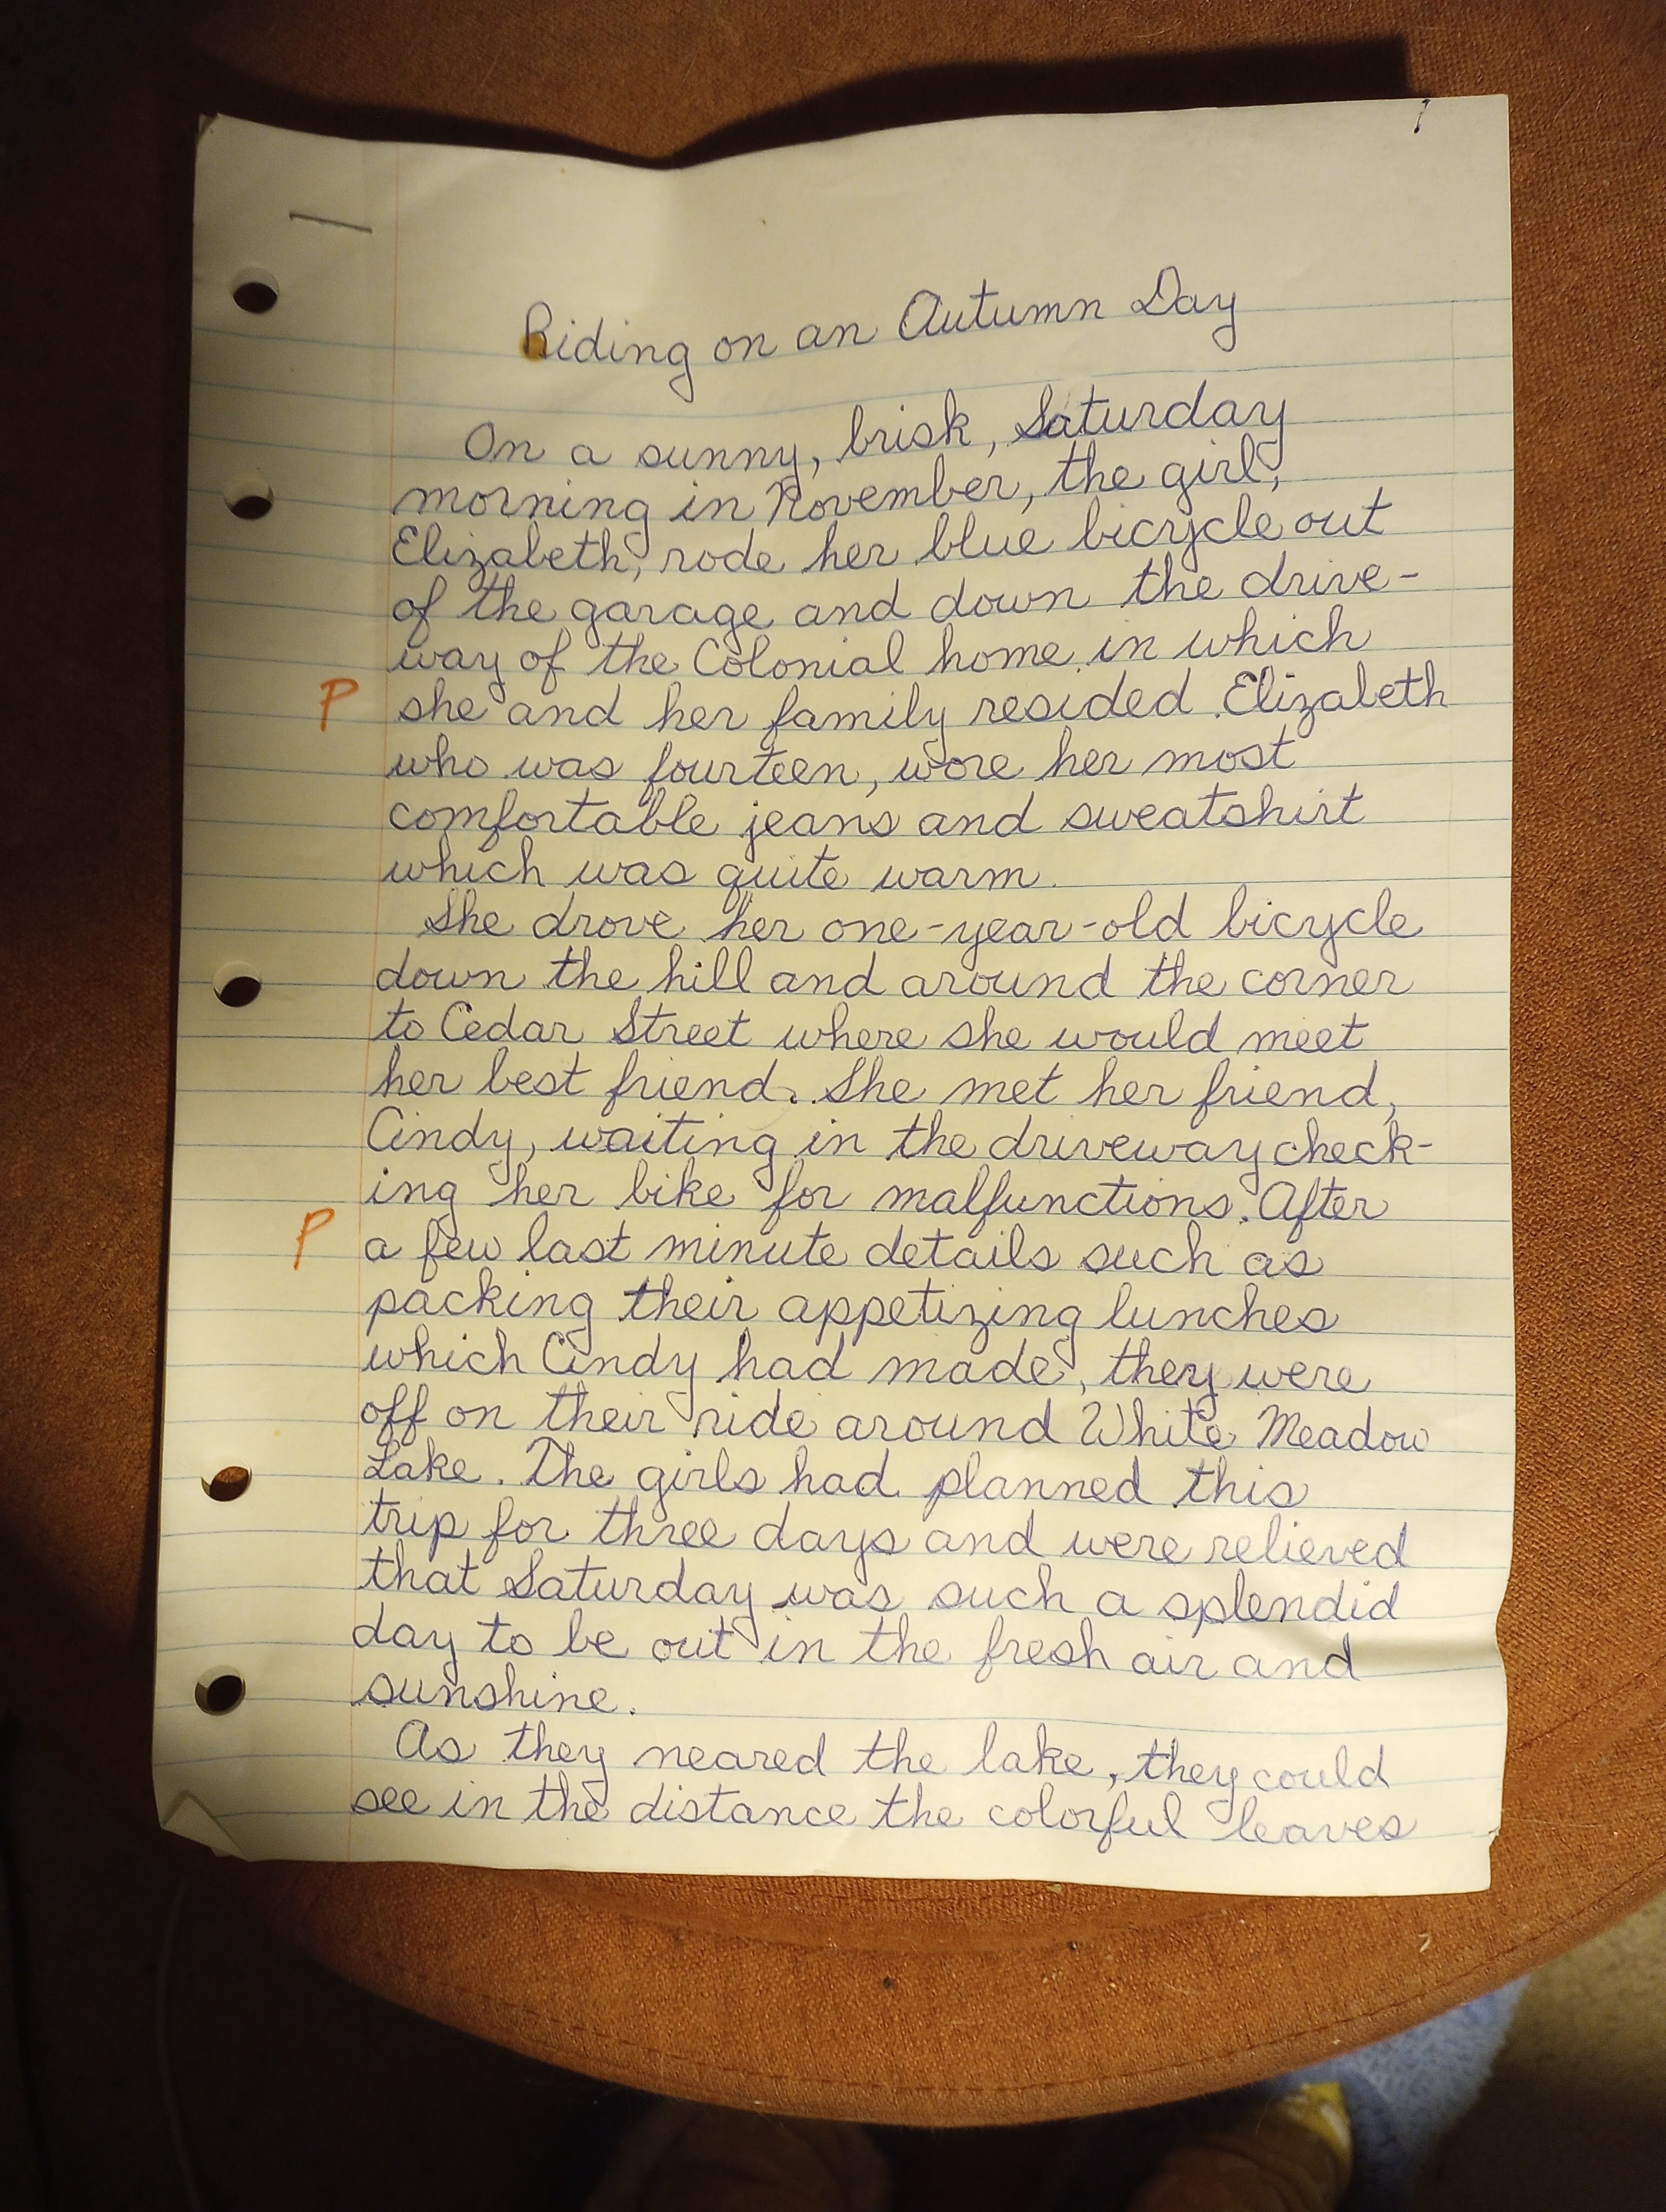 Riding on an Autumn Day
On a sunny, brisk, Saturday
morning in November, the girl,
Elizabeth, rode her blue bicycle out
of the garage and down the drive-
way of the Colonial home in which
P she and her family resided. Elizabeth
who was fourteen, wore her most
comfortable jeans and sweatshirt
which was quite warm.
She drove her one-year-old bicycle
down the hill and around the corner
to Cedar Street where she would meet
her best friend. She met her friend,
Cindy, waiting in the driveway check-
ing her bike for malfunctions. After
P a few last minute details such as
packing their appetizing lunches
which Cindy had made, they were
off on their ride around White Meadow
Lake. The girls had planned this
trip for three days and were relieved
that Saturday was such a splendid
day to be out in the fresh air and
sunshine.
As they neared the lake, they could
see in the distance the colorful leaves